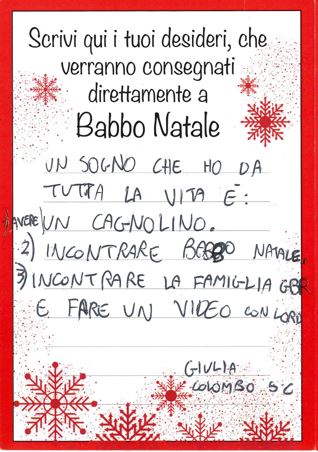 Scrivi qui i tuoi desideri, che
verranno consegnati
direttamente a
Babbo Natale
UN SOGNO CHE HO DA
TUTTA LA VITA È:
1) AVERE UN CAGNOLINO.
2) INCONTRARE BABBO NATALE.
3) INCONTRARE LA FAMIGLIA GBR
E FARE UN VIDEO CON LORO
GIULIA
COLOMBO 5°C